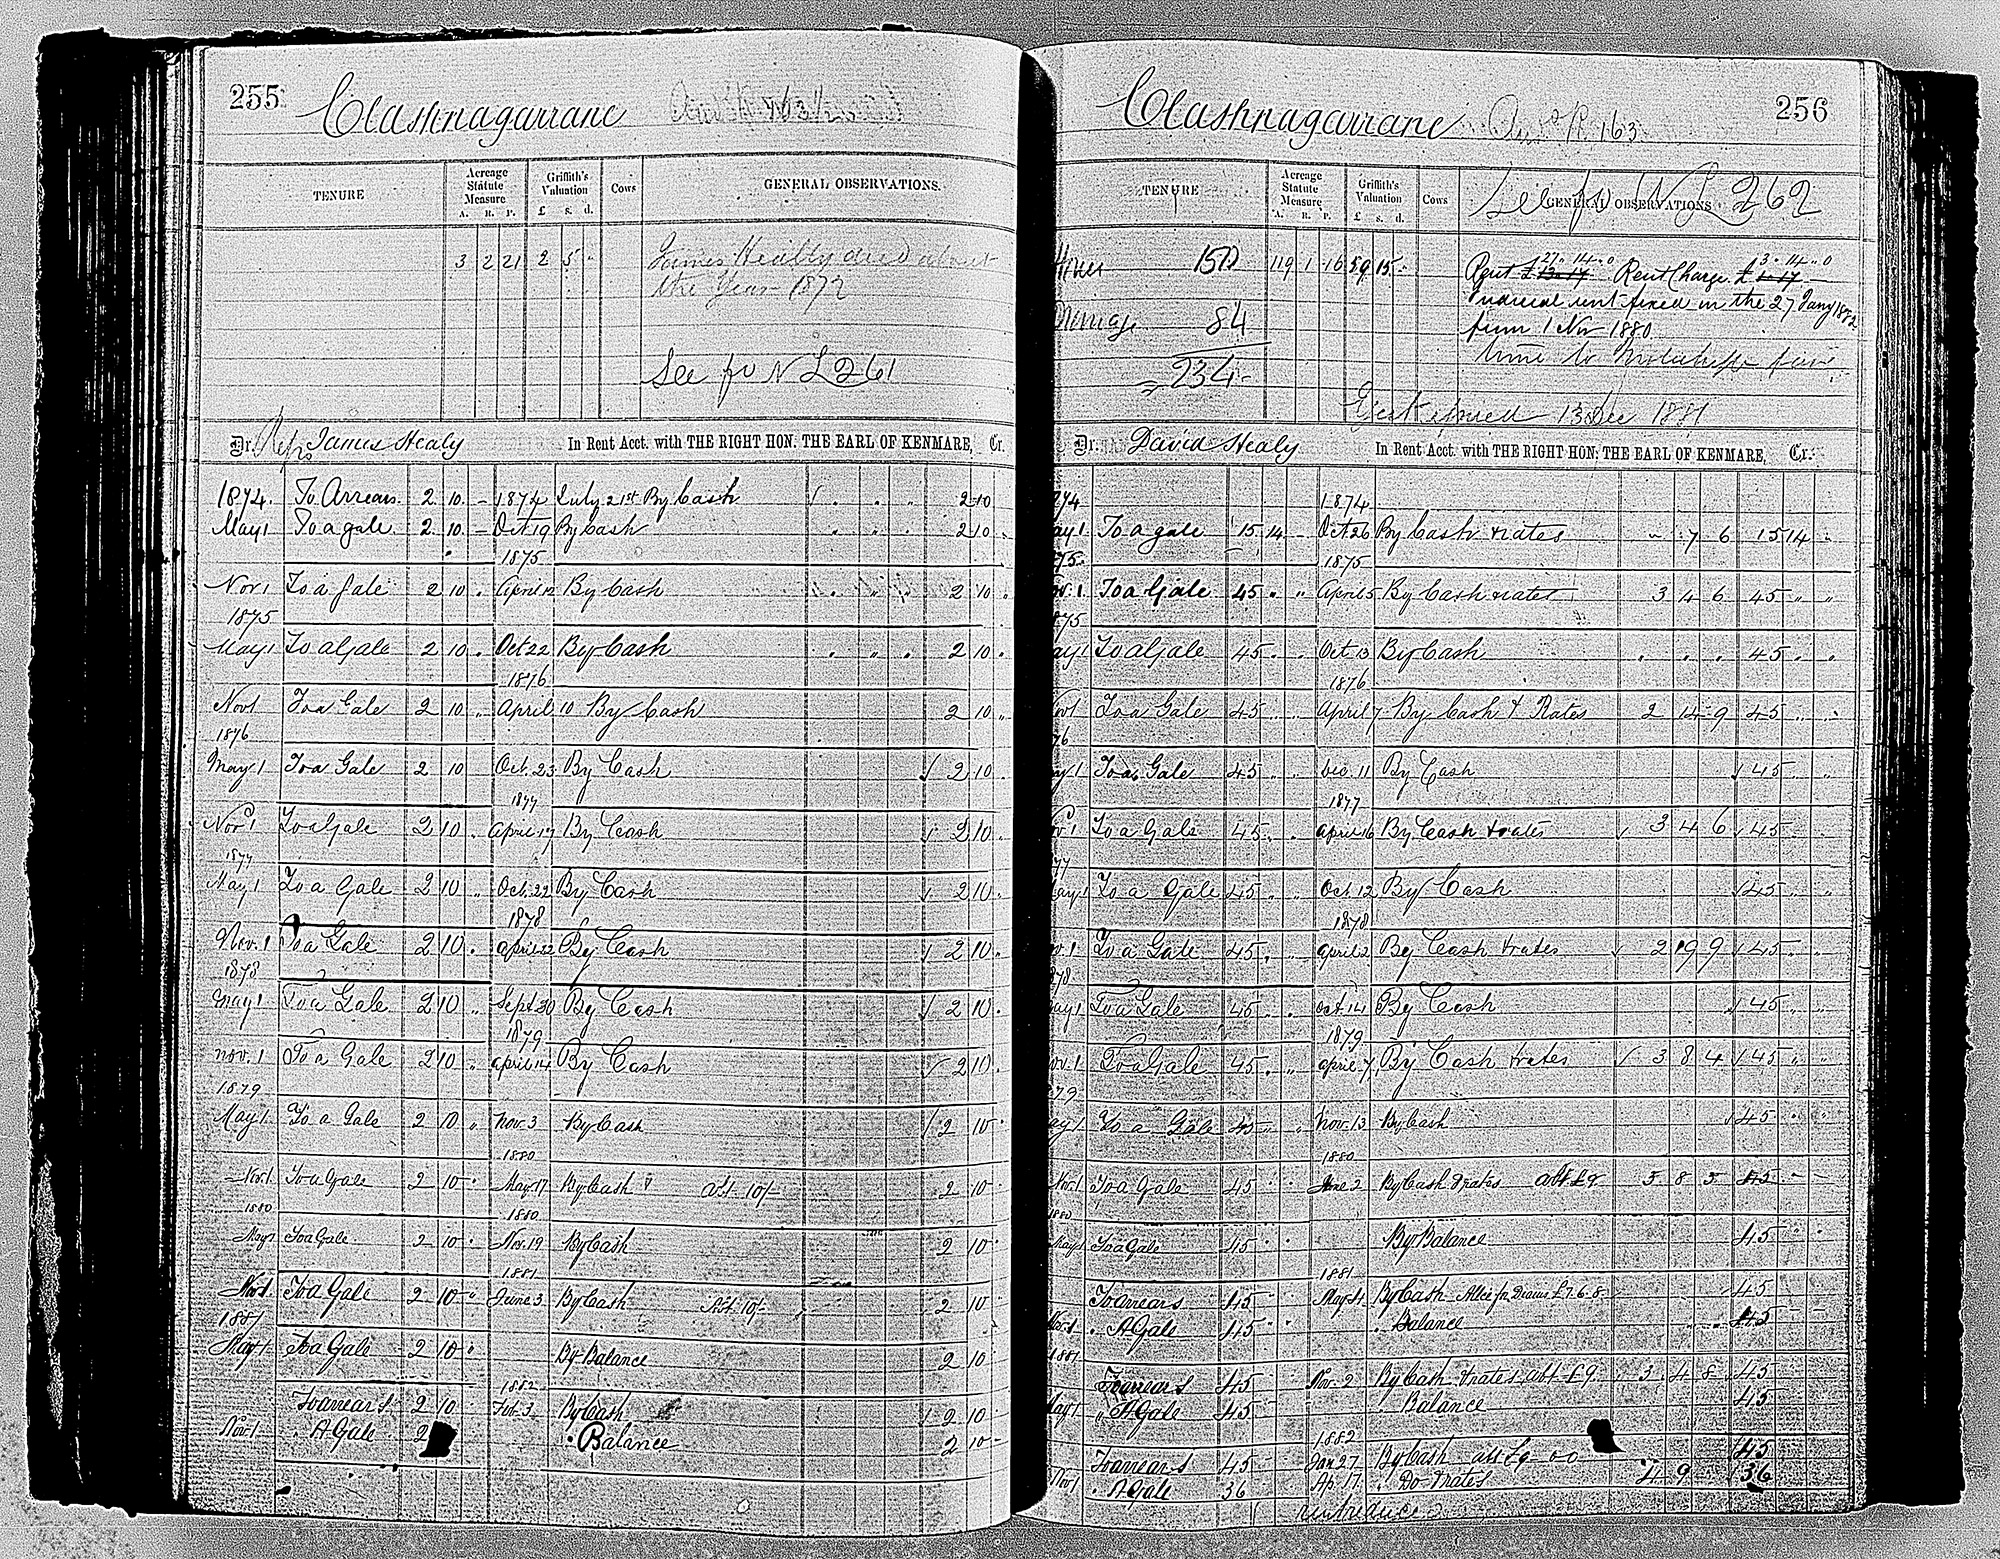 255 Clashnagarrane
TENURE Acreage Statute Measure A. R. P. Griffith's Valuation £ s. d. Cows GENERAL OBSERVATIONS.
3 2 21 2 5 " James Healy died about
the Year 1872
See fo N L 261
Dr. Reps James Healy In Rent Acct. with THE RIGHT HON: THE EARL OF KENMARE, Cr.
1874. To Arrears. 2 10 - 1874 July 21st By Cash 2 10
May 1 To a gale. 2 10 - Oct 19 By Cash 2 10
1875
Nov 1 To a gale 2 10 April 12 By Cash 2 10
1875
May 1 To a Gale 2 10 Oct 22 By Cash 2 10
1876
Nov 1 To a Gale 2 10 April 10 By Cash 2 10
1876
May 1 To a Gale 2 10 Oct. 23 By Cash 2 10
1877
Nov 1 To a Gale 2 10 April 17 By Cash 2 10
1877
May 1 To a Gale 2 10 Oct. 22 By Cash 2 10
1878
Nov. 1 To a Gale 2 10 April 22 By Cash 2 10
1878
May 1 To a Gale 2 10 Sept 30 By Cash 2 10
1879
Nov. 1 To a Gale 2 10 April 14 By Cash 2 10
1879
May 1 To a Gale 2 10 Nov. 3 By Cash 2 10
1880
Nov 1 To a Gale 2 10 May 17 By Cash abt. 10/- 2 10
1880 1880
May 1 To a Gale 2 10 Nov. 19 By Cash 2 10
1881
Nov 1 To a Gale 2 10 June 3 By Cash abt. 10/- 2 10
1881
May 1 To a Gale 2 10 By Balance 2 10
1882
To arrears 2 10 Feb. 3 By Cash 2 10
Nov 1 " A Gale 2 " Balance 2 10 -
Clashnagarrane 163 256
TENURE Acreage Statute Measure A. R. P. Griffith's Valuation £ s. d. Cows GENERAL OBSERVATIONS.
See fo N L 262
150 119 1 16 59 15 " Rent £13.17 27.14.0 Rent Charge £1.17 3.14.0
Judicial rent fixed on the 27 Jany 1882
from 1 Nov 1880
84
234
13 Dec 1881
Dr. David Healy In Rent Acct. with THE RIGHT HON: THE EARL OF KENMARE, Cr.
74 1874
ay 1 To a gale 15 14 - Oct 26 By Cash & rates " 7 6 15 14 "
75 1875
ov. 1 To a Gale 45 " " April 5 By Cash & rates 3 4 6 45 " "
75
ay 1 To a Gale 45 Oct. 13 By Cash 45
1876
Nov 1 To a Gale 45 April 7 By Cash & Rates 2 14 9 45
76
y 1 To a Gale 45 Dec. 11 By Cash 45
1877
ov 1 To a Gale 45 April 16 By Cash & rates 3 4 6 45
77
ay 1 To a Gale 45 Oct. 12 By Cash 45
1878
ov. 1 To a Gale 45 April 2 By Cash & rates 2 19 9 45
78
ay 1 To a Gale 45 Oct. 14 By Cash 45
1879
ov. 1 To a Gale 45 April 7 By Cash & rates 3 8 4 45
79
ay 1 To a Gale 45 Nov. 13 By Cash 45
1880
Nov 1 To a Gale 45 June 2 By Cash & rates abt £9 5 8 5 45
1880
May 1 To a Gale 45 By Balance 45
1881
To arrears 45 May 4 By Cash Allce for Drains £7.6.8 45
Nov 1 " A Gale 45 " Balance 45
1881
To arrears 45 Nov. 2 By Cash & rates abt £9 3 4 8 45
May 1 " A Gale 45 Balance 45
1882
To arrears 45 Jan 27 By Cash abt £9-0-0 45
Nov 1 " A Gale 36 Ap. 17 " Do & rates 4 9 36